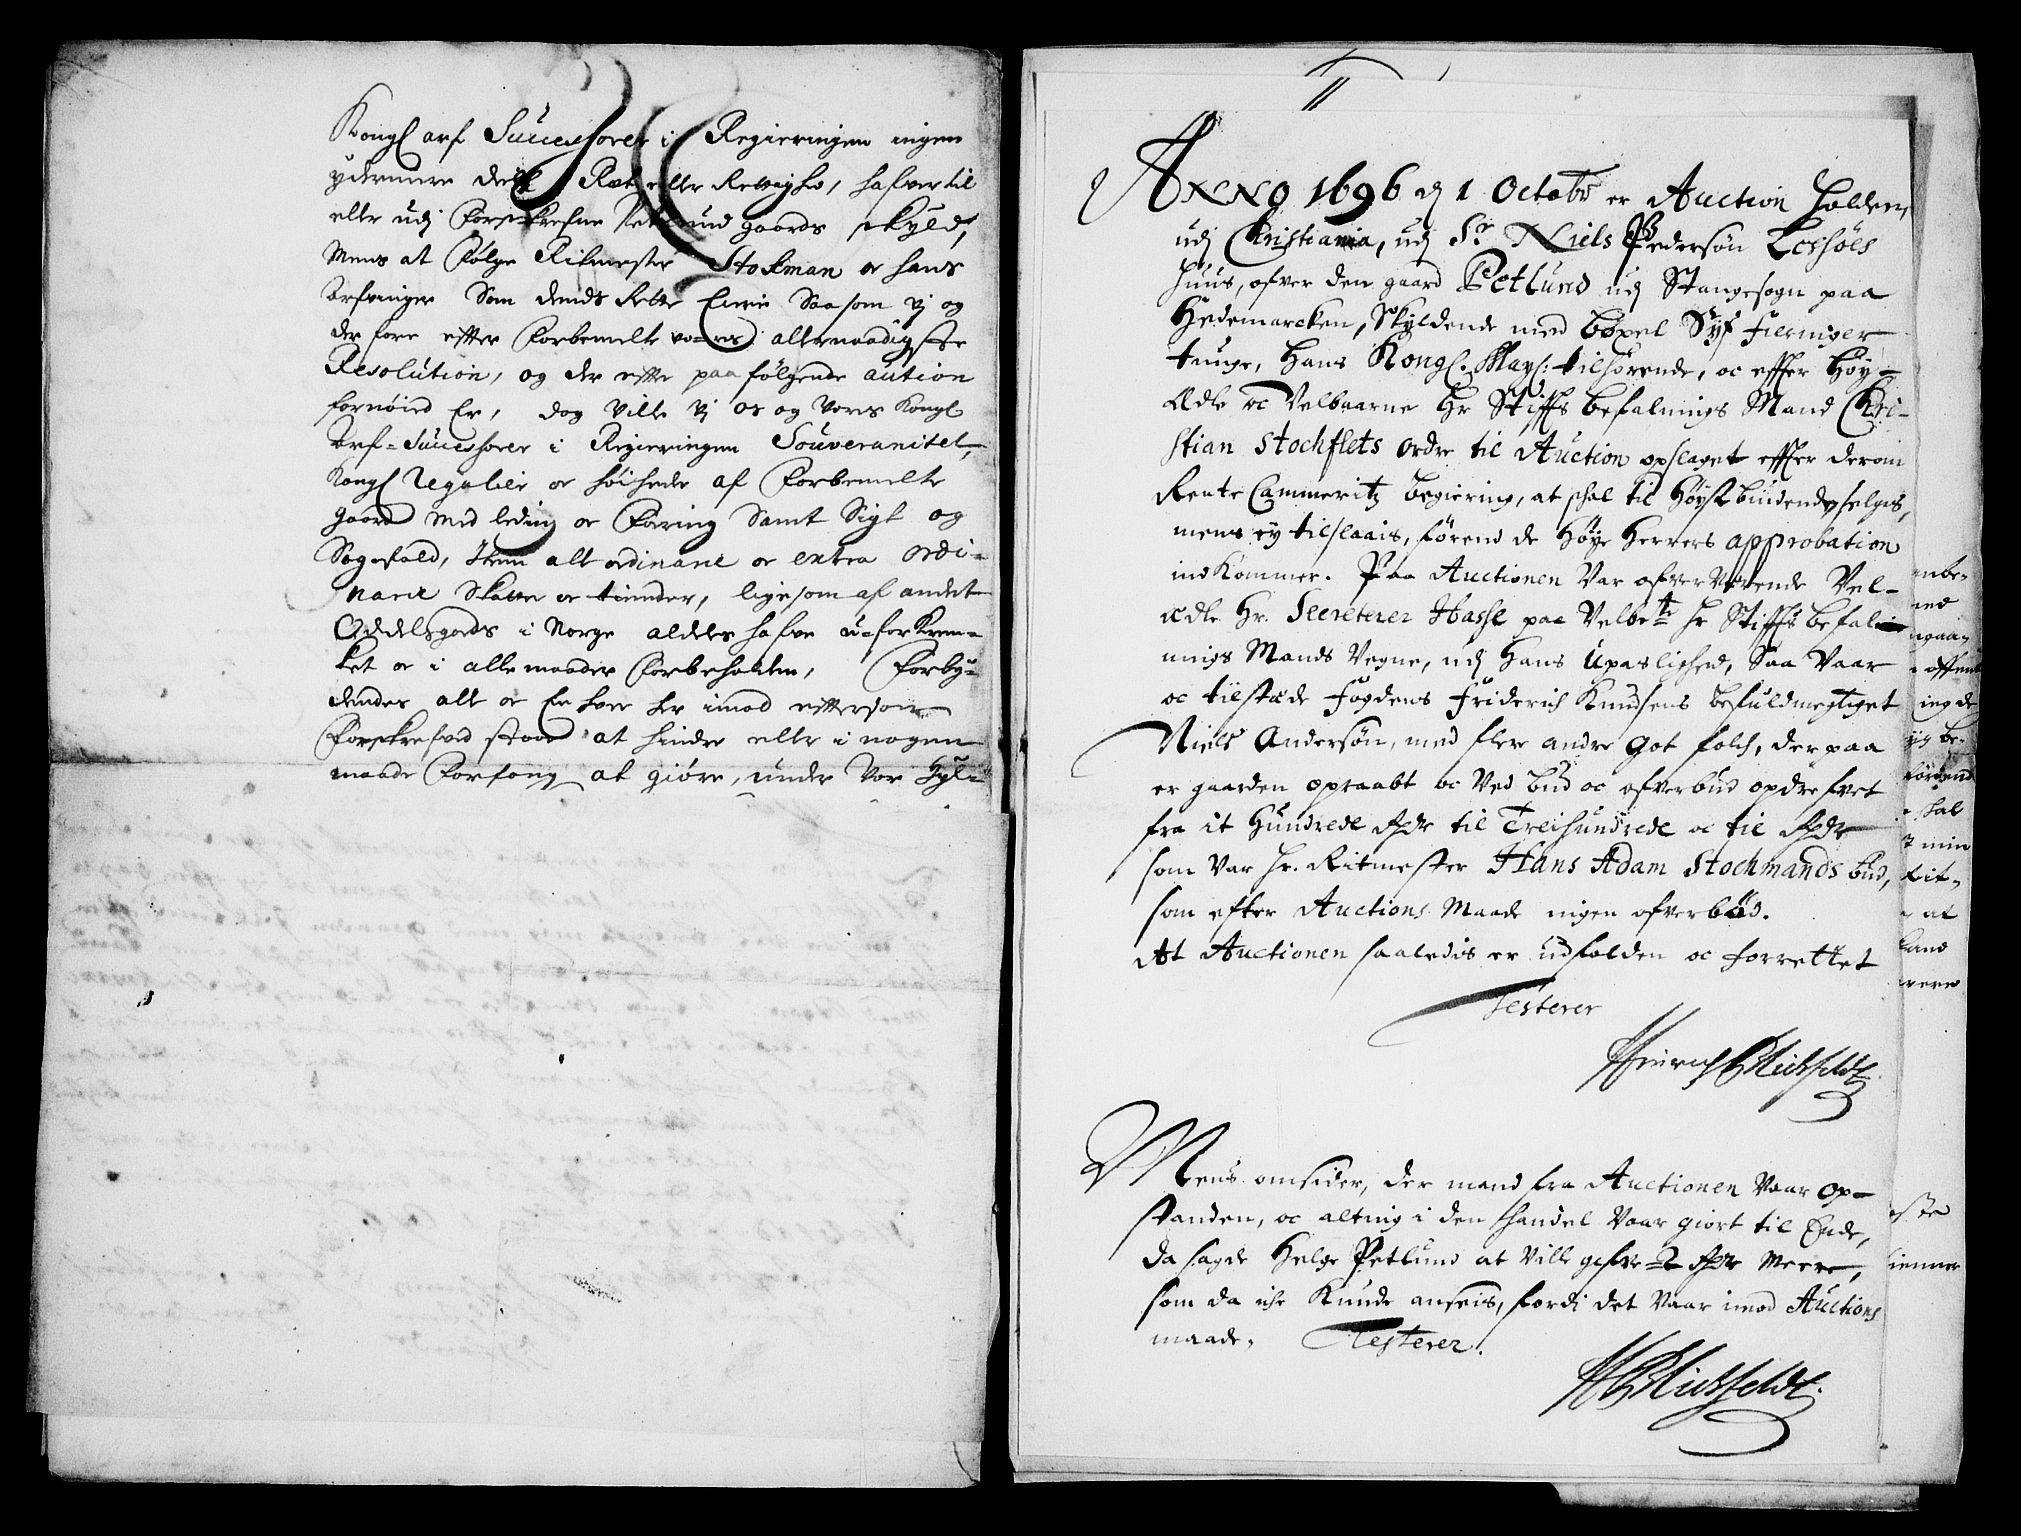 Kongl arf Successorer i Regieringen ingen
ydermere deel, Ræt eller Rettighed, hafver til
eller udj Forskrefne Petlund gaards skyld,
Mens at følge Ritmester Stokman oc hans
Arfvinger Som dends rette Eiere Saasom vj og
derfore efter forbemelte vores allernaadigste
Resolution, og der efter paa følgende aution
fornøied Er, dog ville vj os og Vores Kongl
Arf-Successorer i Regieringen Souveranitet,
Kongl Regalier oc høihede af forbemelte
gaard med leding oc foring Samt Sigt og
Sagefald, Item alt ordinarie oc extra ordi-
narie Skatter oc tiender, ligesom af andet
Oddelsgods i Norge aldeles hafve u-forkren-
ket oc i alle maader forbeholden, Forby-
dendes alle oc En hver her imod eftersom
forskrefvid staar at hindre eller i nogen
maade forfang at giøre, under Vor Hyl-
Anno 1696 dj 1 Octobr er Auction holden
udj Christiania, udj Sr Niels Pedersøn
huus, ofver den gaard Petlund udj Stangesogn paa
Hedemarcken, Skyldende med bøxel Syf fierninger
tunge, Hans Kongl. Mayt: tilhørende, oc efter Høy-
Ædle oc Velbaarne Hr Stifts befalnings Mand Chri-
stian Stochflets ordre til Auction opslaget efter derom
Rente Cammeritz begiering, at skal til Høystbiudende selges,
mens ey tilslaais, førend de Høye Herrers approbation
indkommer. Paa Auctionen Var ofverværende Vel-
ædle Hr. Secreterer Hasse paa Velbete Hr Stifts befal-
nings Mands Vegne, udj Hans Upaslighed, Saa Vaar
oc tilstæde Fogdens Friderich Knudsens befuldmegtiget
Niels Andersøn, med flere andre got folch, der paa
er gaarden opraabt oc Ved bud oc ofverbud opdrefvet
fra it Hundrede Rdr til Treihundrede oc tie Rdr
som Var Hr. Ritmester Hans Adam Stochmands bud,
som efter Auctions Maade ingen ofverbød.
At Auctionen saaledis er udholden oc forrettet
Testerer
Mens omsider, der mand fra Auctionen Vaar op-
standen, oc alting i den handel Vaar giort til Ende,
da sagde Helge Petlund at Ville gifve 2 Rdr Meere,
som da iche Kunde anseis, fordi det Vaar imod Auctions
maade. Testerer.